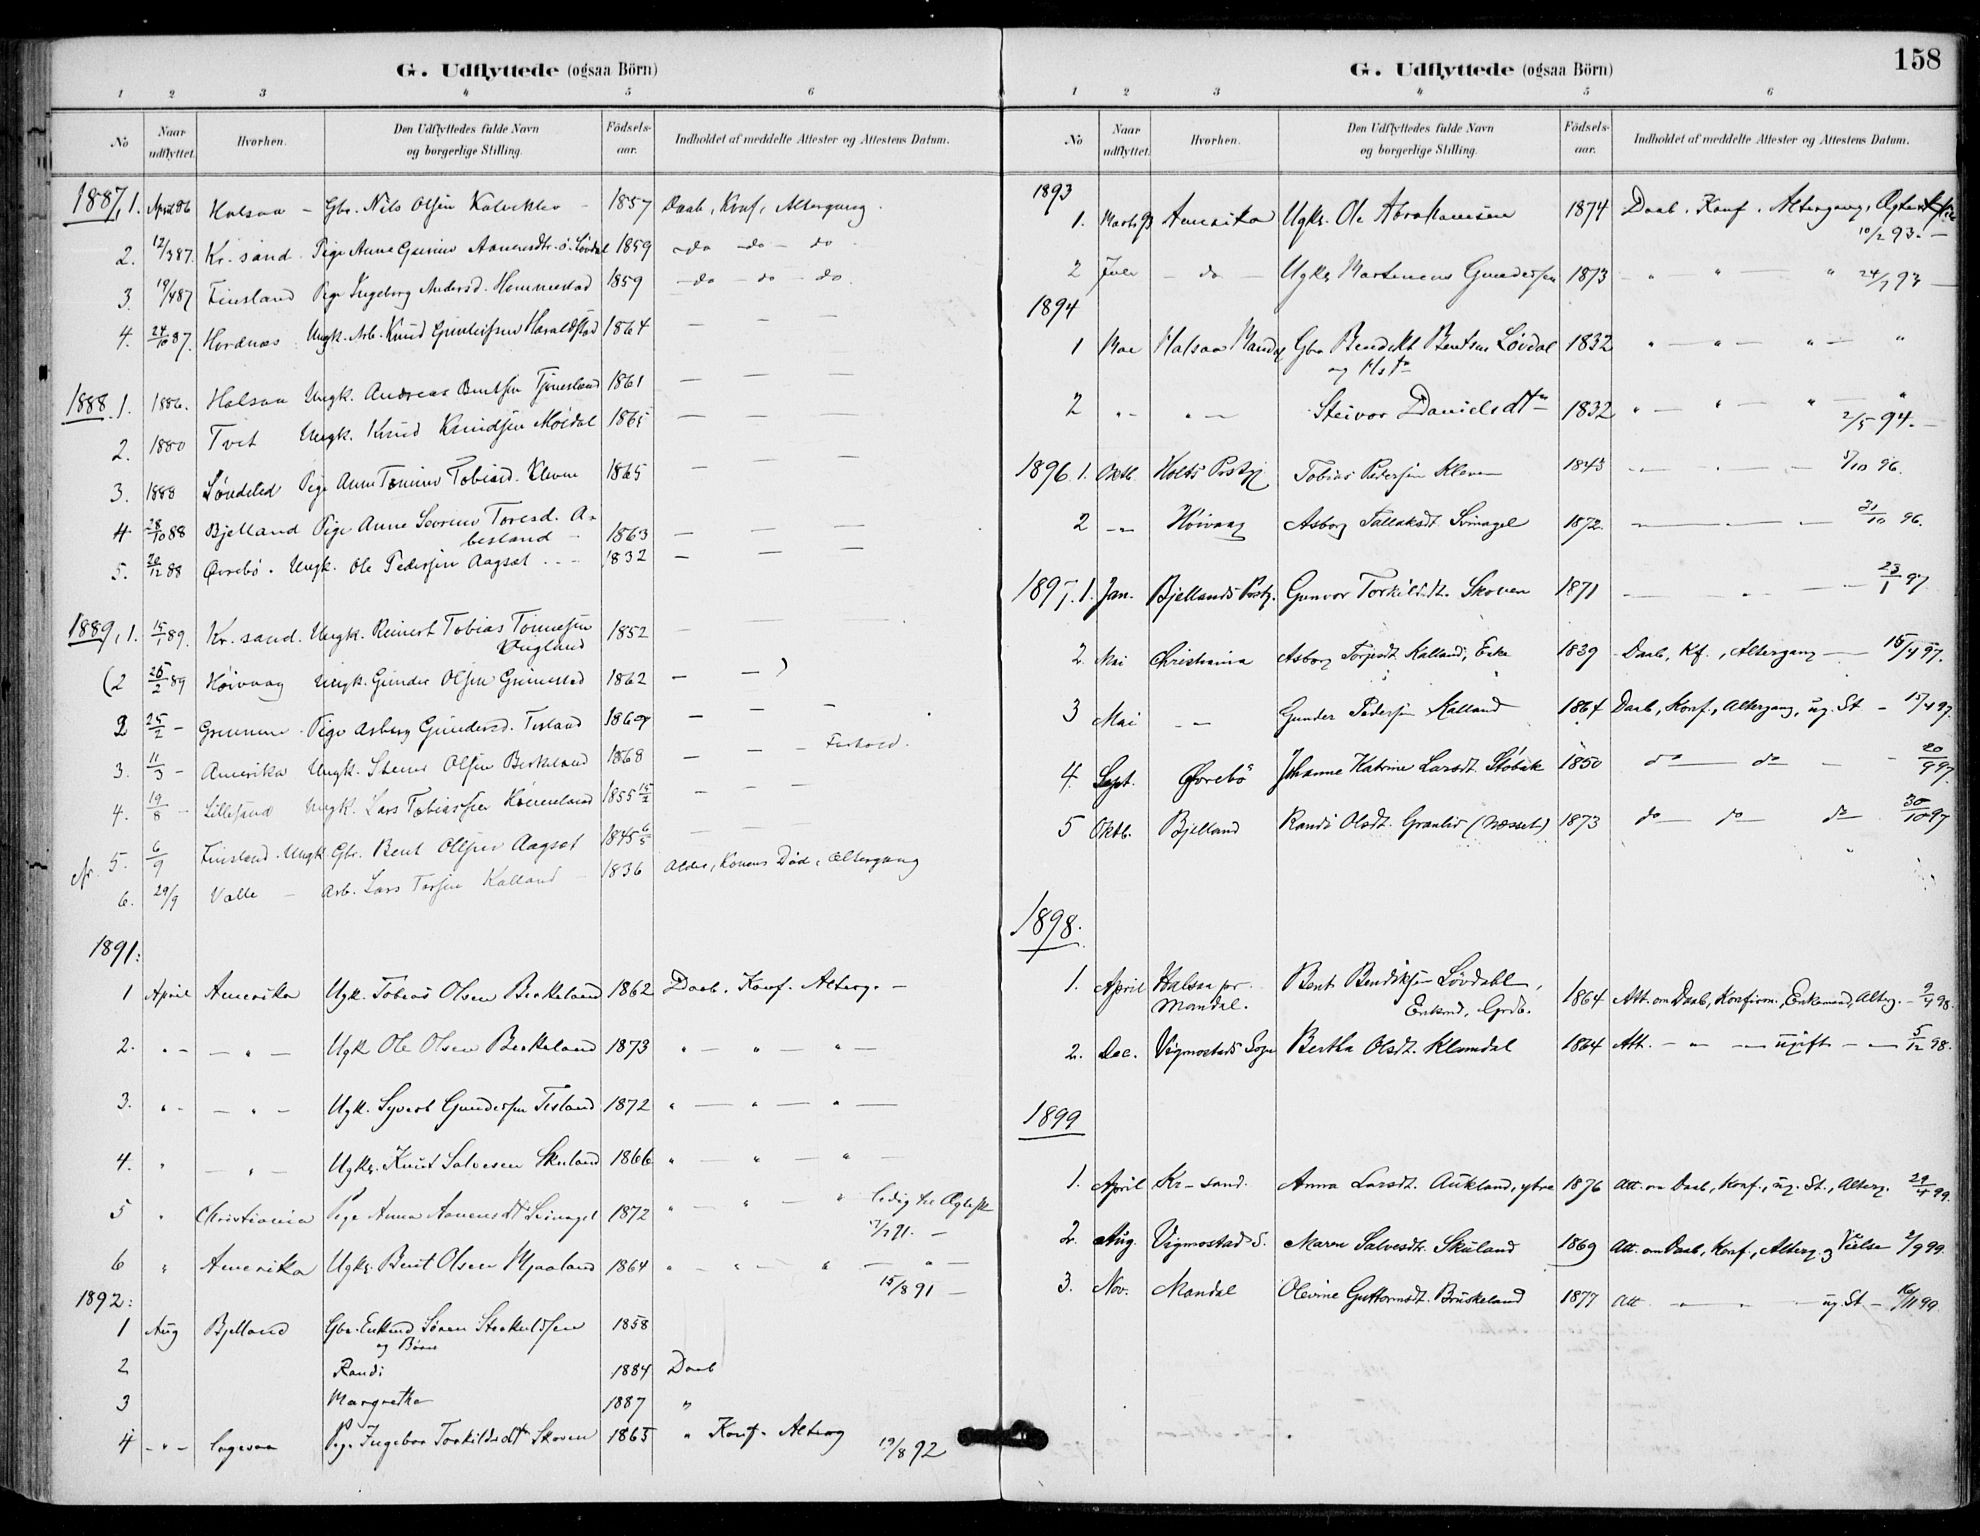 G. Udflyttede (ogsaa Börn)
1 2 3 4 5 6
No Naar udflyttet. Hvorhen. Den Udflyttedes fulde Navn og borgerlige Stilling. Födsels-aar. Indholdet af meddelte Attester og Attestens Datum.
1887, 1. April 86 Halsaa - Gbr. Nils Olsen - 1857 Daab, Konf, Altergang.
2. 12/3 87. Kr. sand. Pige Anne Gurine Aanensdtr. ö. Lövdal 1859 - do - do - do
3. 19/4 87 Finsland Pige Ingeborg Andersd. Hommestad 1859 - do - do - do.
4. 24/10 87. Hordnæs Ungk. Arb. Knud Haraldstad 1864 — — —
1888. 1. 1886. Halsaa Ungk. Andreas Bentsen 1861 — — —
2. 1880 Tvet Ungk. Knud Knudsen 1865 — — —
3. 1888 Söndeled Pige Anne Tobiasd. Kleven 1865 — — —
4 28/10 88 Bjelland Pige Anne Toresd. A-
besland - 1863 — — —
5. 20/12 88 Övrebö. Ungk. Ole Pedersen Aagset 1832 — — —
1889, 1. 15/1 89. Kr. sand. Ungk. Reinert Tobias Tönnesen
1852 — — —
(2 25/2 89 Höivaag Ungk. Gunder Olsen Grimestad 1862 — — )
2 25/2 - Pige Asberg Gundersd. Tisland — — —
3. 11/3 - Amerika Ungk. Olsen Birkeland 1868 — — - Forhold.
4. 19/8 - Lillesand Ungk. Lars Tobiassen 1855 15/2 — — —
5. 6/9 Finsland. Ungk. Gbr. Bent Olsen Aagset 1845 6/5 — — —
6. 29/9 Valle - Arb. Lars Kalland - 1836 Alder, Konens Död, Altergang
1891:
1 April Amerika Ugk. Tobias Olsen Birkeland 1862 Daab. Konf. Alterg. -
2. " - — " — Ugk Ole Olsen Birkeland 1873 " — " — " —
3. " - — " — Ugk. Syvert Gundersen Tisland 1872 " — " — " —
4. " — " — Ugk. Knut Salvesen Skuland 1866 " — " — " —
5 " Christiania Pige Anna Aanensdt Svinagel 1872 " — " — " ledig til
6 " Amerika Ugk. Berit Olsen Mjaaland 1864 " - " — " — " —
15/8 91 —
1892:
1 Aug Bjelland Gbr. Enkmd Sören 1858
og Börn
2 Randi 1884 Daab
3 Margrethe 1887 "
4 - " - Pige Ingebor Torkildsdtr Skoven 1865 " Konf. Alterg
19/8 92
158
G. Udflyttede (ogsaa Börn)
1 2 3 4 5 6
No Naar udflyttet. Hvorhen. Den Udflyttedes fulde Navn og borgerlige Stilling. Födsels-aar. Indholdet af meddelte Attester og Attestens Datum.
1893
1. Marts Amerika Ugk. Ole Abrahamsen 1874 Daab. Konf. Altergang,
10/2 93. -
2 Juli — do — Ugk. Martenius Gundersen 1873 — " — " — " 24/7 93 —
1894
1 Mai Halsaa Mandal Gbr Bendikt Bentsen Lövdal 1832 " — " — " — "
og
2 " - " — Steivor Danielsdtr 1832 " — " — " — "
2/5 94. -
1896. 1. Oktb. Holts Prstgj Tobias Pedersen Kleven 1843 — — — 96.
2 - " - Höivaag Asborg Tallaksdt Svinagel 1872. — — — 31/10 96.
1897. 1. Jan. Bjellands Prstg. Gunvor Torkildsdt. Skoven 1871 — — — 23/1 97.
2. Mai Christiania Asborg Kalland, Enke 1839 Daab, Kf., Altergang — 15/4 97.
3 Mai - " - Gunder Pedersen Kalland 1864 Daab, Konf., Altergang, ug. St - 15/4 97.
4. Sept. Övrebö Johanne Katrine Larsdt. 1850 do — do — - 20/9 97.
5 Oktb. Bjelland Randi Olsdt. Granlid (Næsset) 1873 do — do — do — 30/10 97
1898.
1. April Halsaa pr. Bent Bendiksen Lövdahl,
Mandal. Enkmd, Grdb. 1864 Att. om Daab, Konfirm., Enkemand, Alterg. - 9/4 98.
2. Dec. Vigmostads Sogn Bertha Olsdt. Klamdal 1864 Att. — " — ugift — 5/12 98.
1899
1. April Kr-sand. Anna Larsdt. Aukland, ytre 1876 Att. om Daab, Konf., ug. St., Alterg. 29/4 99.
2. Aug. Vigmostad S. Maren Salvesdtr. Skuland 1869 Att. om Daab, Konf., Alterg. og Vielse 2/9 99.
3. Nov. Mandal Olevine Guttormsdt. Bruskeland 1877 Att — " — ug. St - 16/11 99.